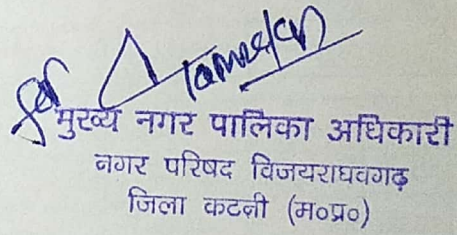 मुख्य नगर पालिका अधिकारी
नगर परिषद विजयराघवगढ़
जिला कटनी (म०प्र०)